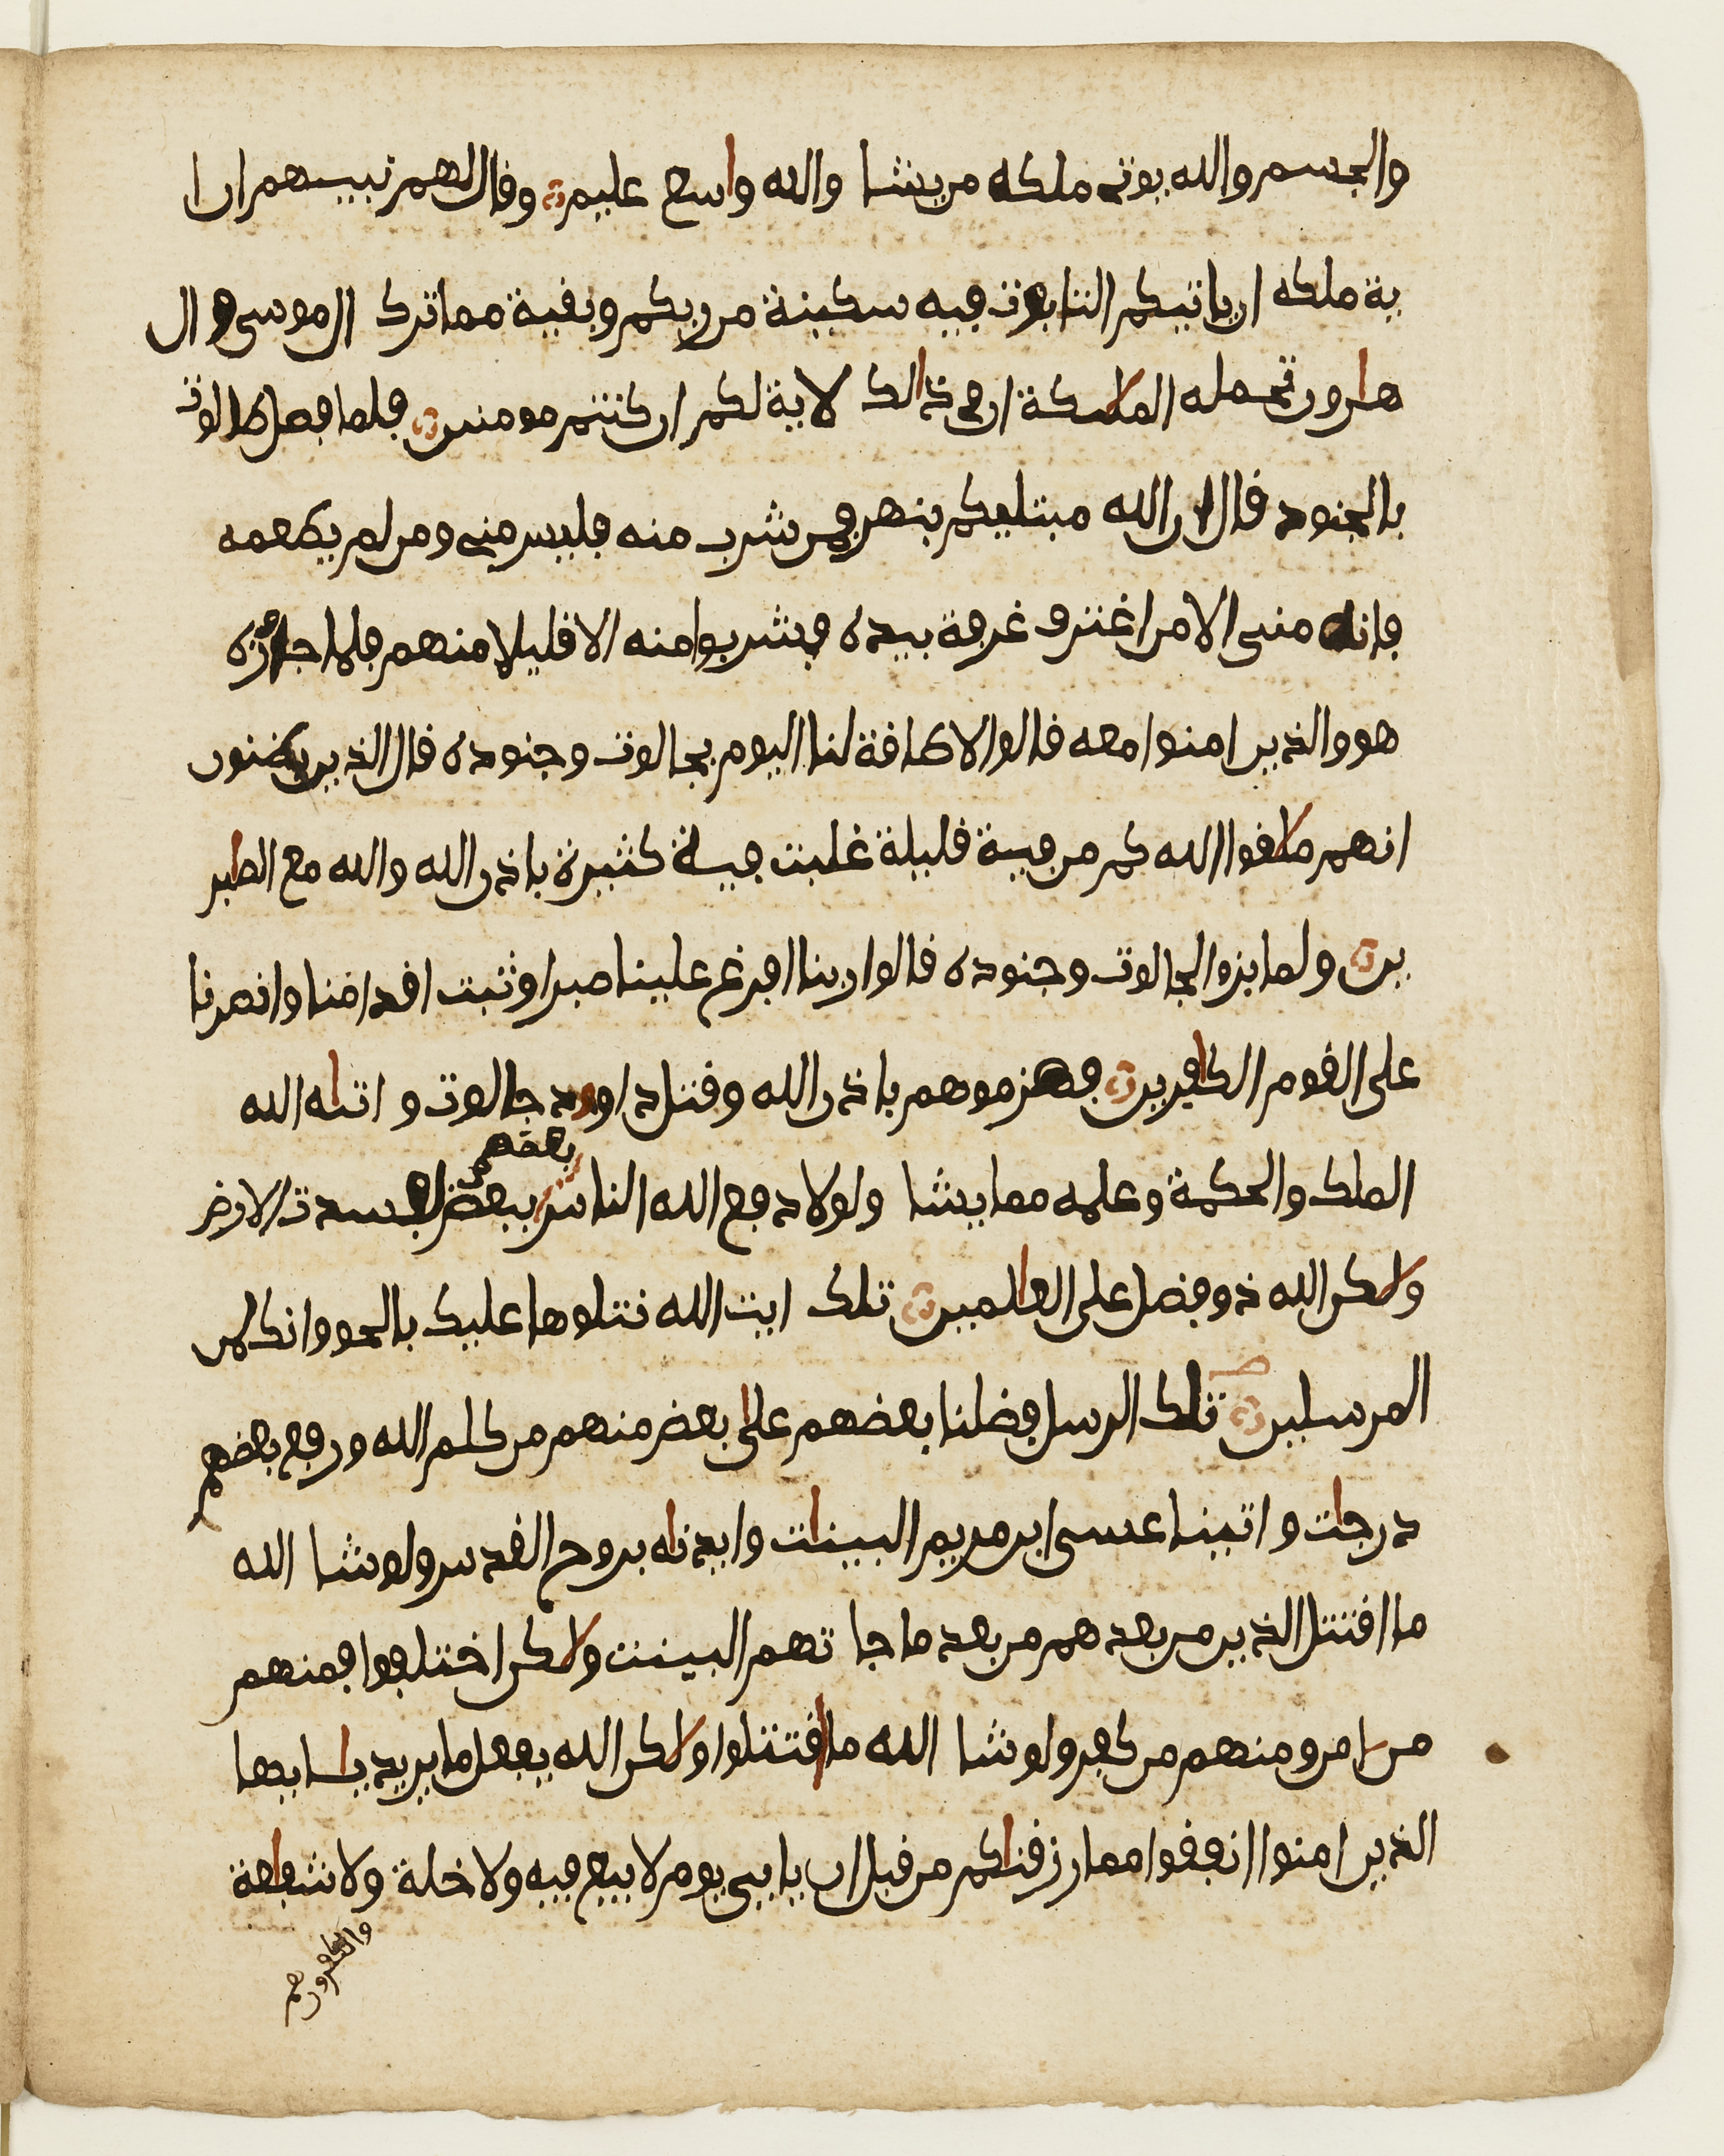 والجسم والله يوتى ملكه من يشا والله واسع عليم وقال لهم نبيهم ان ا
ية ملكه ان ياتيكم التابوت فيه سكينة من ربكم وبقية مما ترك ال موسى وال
هارون تحمله الملكة ان في ذالك لاية لكم ان كنتم مومنين فلما فصل طالوت
بالجنود قال ان الله مبتليكم بنهر فمن شرب منه فليس منى ومن لم يطعمه
فانه منى الا من اغترف غرفة بيده فشربوا منه الا قليلا منهم فلما جاوزه
هو والذين امنوا معه قالوا لا طاقة لنا اليوم بجالوت وجنوده قال الذين يظنون
انهم ملاقوا الله كم من فية قليلة غلبت فية كثيرة باذن الله والله مع الصابر
ين ولما برزوا لجالوت وجنوده قالوا ربنا افرغ علينا صبرا وثبت اقدامنا وانصرنا
على القوم الكافرين فهزموهم باذن الله وقتل داوود جالوت واتاه الله
بعضهم
الملك والحكمة وعلمه مما يشا ولولا دفع الله الناس ببعض لفسدت الارض
ولاكن الله ذو فضل على العالمين تلك ايت الله نتلوها عليك بالحق وانك لمن
المرسلين تلك الرسل فضلنا بعضهم على بعض منهم من كلم الله ورفع بعضهم
درجات واتينا عيسى ابن مريم البينات وايدناه بروح القدس ولو شا الله
ما اقتتل الذين من بعدهم من بعد ما جا تهم البينت ولاكن اختلفوا فمنهم
من امن ومنهم من كفر ولو شا الله ما اقتتلوا ولاكن الله يفعل ما يريد يا ايها
الذين امنوا انفقوا مما رزقناكم من قبل ان ياتى يوم لا بيع فيه ولا خلة ولا شفاعة
والكافرون هم